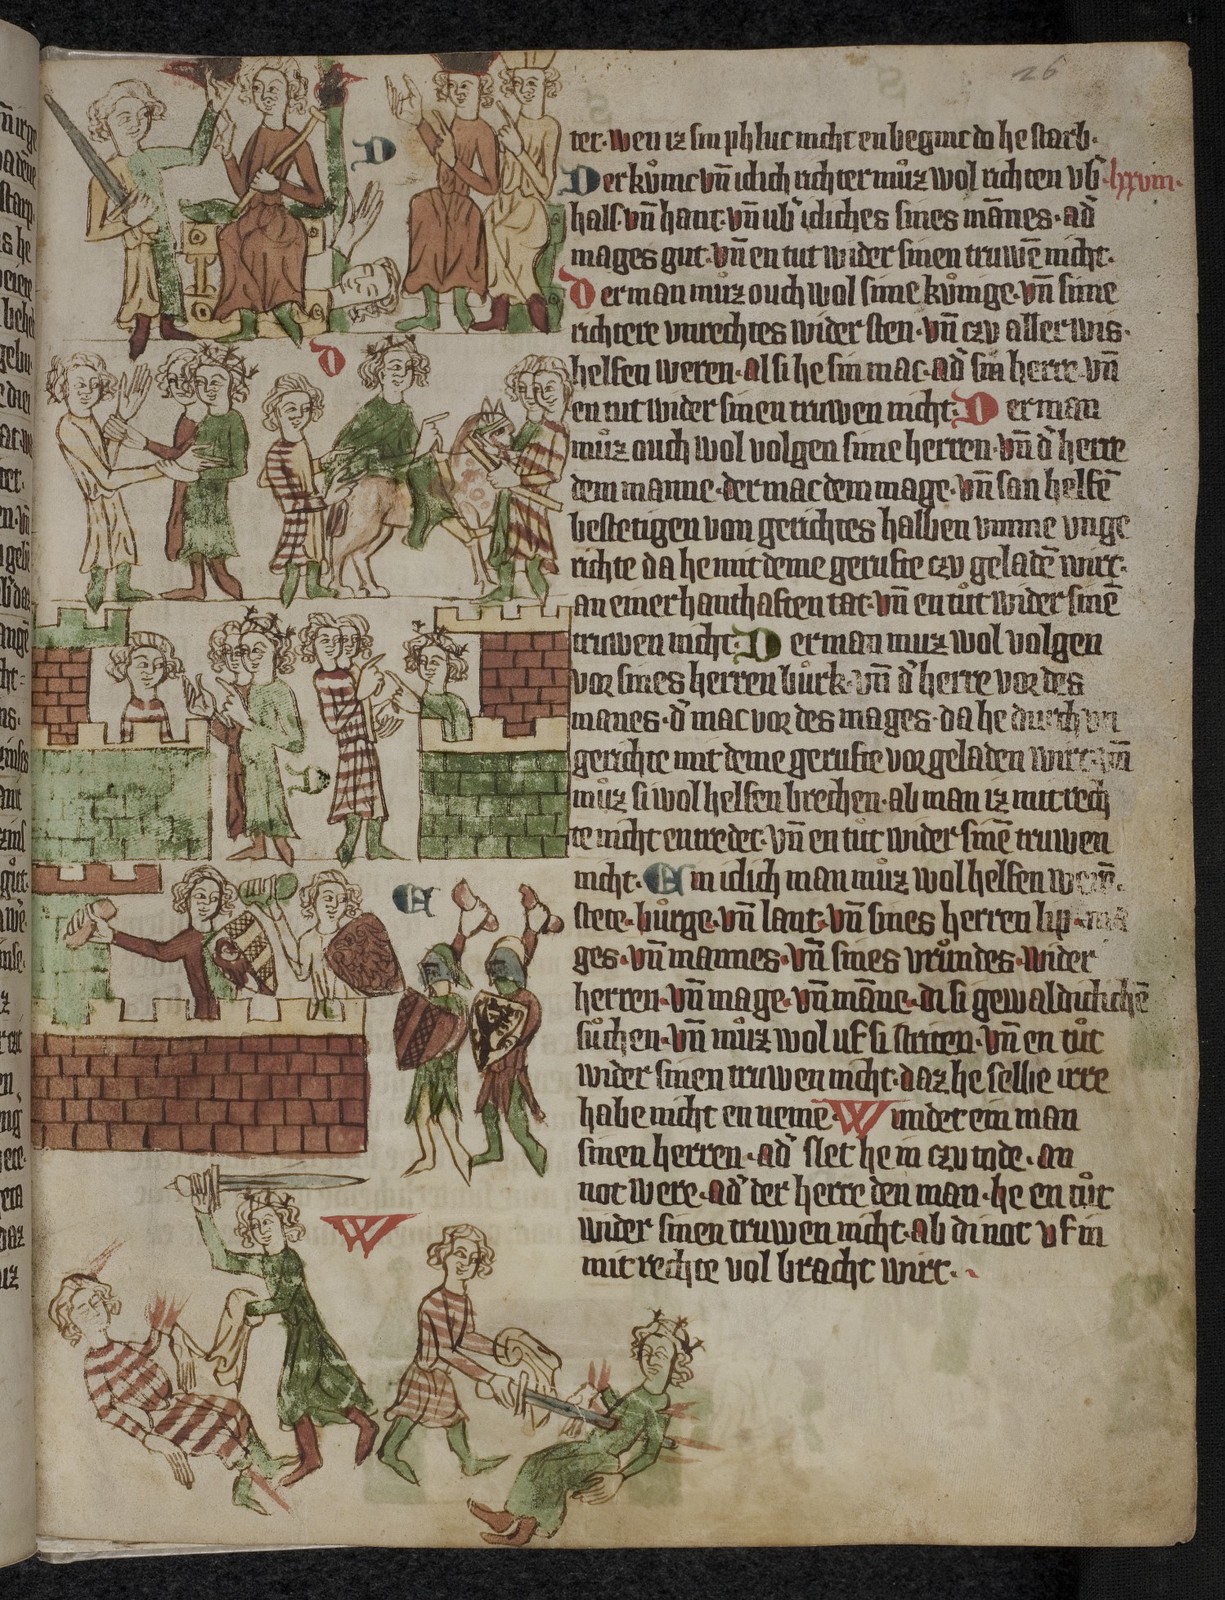 26
ter. wen iz sin phluc nicht en begint do he starb.
Der kůnic vñ iclich richter můz wol richten vb̄ lxxviii.
hals. vñ hant. vñ ub̄ icliches sines mānes. ad̄
mages gut. vñ en tut wider sinen truwē nicht.
Der man můz ouch wol sime kůnige. vñ sime
richtere vnrechtes wider sten. vñ czv aller wis.
helfen weren. al si he sin mac. ad̄ sin herre. vñ
en tut wider sinen truwen nicht. Der man
můz ouch wol volgen sime herren. vñ d̄ herre
dem manne. der mac dem mage. vñ san helfē
bestetigen von gerichtes halben vmme vnge
richte da he mit deme gerufte czv geladē wirt.
an einer hanthaften tat. vñ en tůt wider sinē
truwen nicht. Der man muz wol volgen
vor sines herren bůrk. vñ d̄ herre vor des
manes. d̄ mac vor des mages. da he durch vn
gerichte mit deme gerufte vor geladen wirt. vñ
můz si wol helfen brechen. ab man iz mit rech
te nicht en redet. vñ en tůt wider sinē truwen
nicht. Ein iclich man můz wol helfen
stete. bůrge. vñ lant. vñ sines herren lip. ma
ges. vñ mannes. vñ sines vrůndes. wider
herren. vñ mage. vñ māne. di si gewaldiclichē
sůchen. vñ můz wol uf si striten. vñ en tůt
wider sinen truwen nicht. daz he selbe irre
habe nicht en neme. Wundet ein man
sinen herren. ad̄ slet he in czv tode. an
not were. ad̄ der herre den man. he en tůt
wider sinen truwen nicht. ab di not vf in
mit rechte vol bracht wirt.
D
D
D
E
W